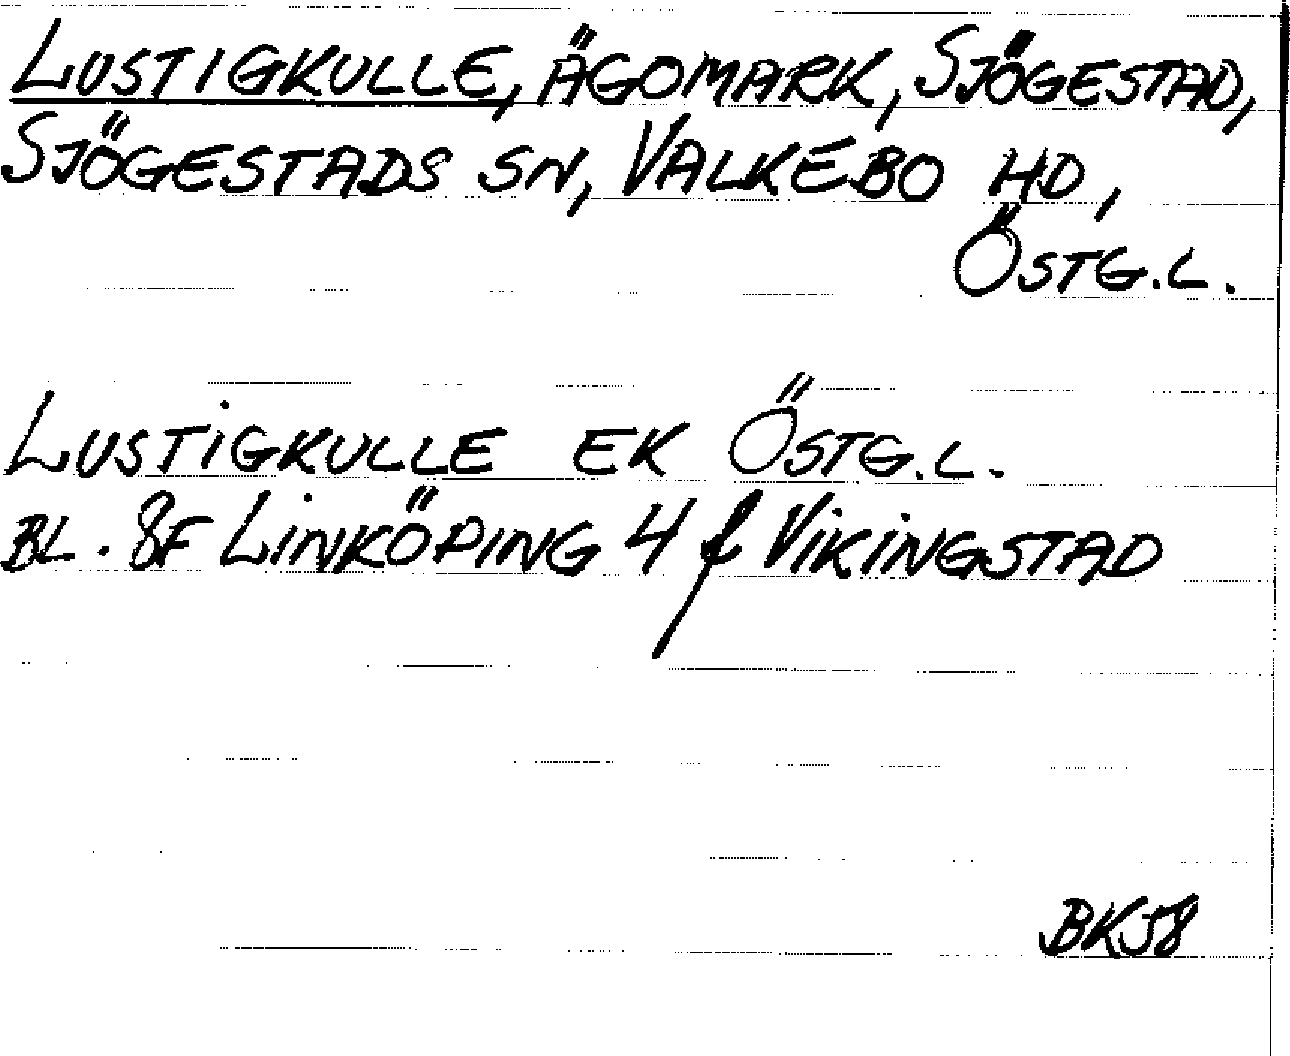 LUSTIGKULLE, ÄGOMARK, SJÖGESTAD,
SJÖGESTADS SN, VALKEBO HD,
ÖSTG.L.
LUSTIGKULLE EK ÖSTG.L.
BL. 8F LINKÖPING 4 f VIKINGSTAD
BK58